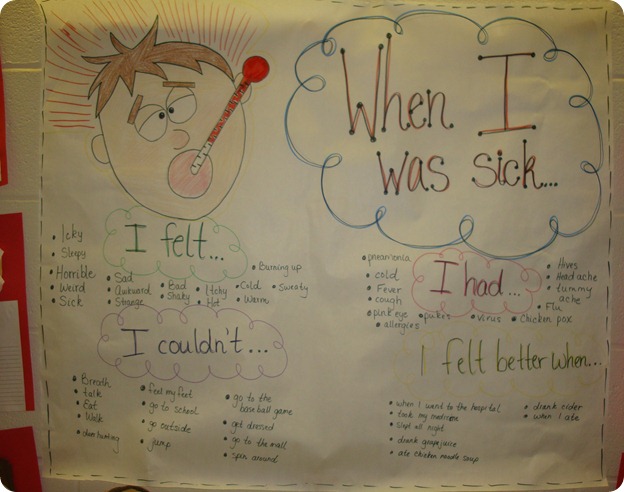 When I
was sick...
I felt...
• Icky
• Sleepy
• Horrible
• Weird
• Sick
• Sad
• Awkward
• Strange
• Bad
• Shaky
• Itchy
• Hot
• Cold
• Warm
• Burning up
• Sweaty
I had...
• pneamonia
• cold
• Fever
• cough
• pink eye
• allergies
• pukes
• virus
• Chicken pox
• Hives
• Head ache
• tummy
ache
• Flu
I couldn't...
• Breath
• talk
• Eat
• Walk
• hunting
• feel my feet
• go to school
• go outside
• jump
• go to the
baseball game
• get dressed
• go to the mall
• spin around
I felt better when...
• when I went to the hospital
• took my medicine
• slept all night
• drank grape juice
• ate chicken noodle soup
• drank cider
• when I ate